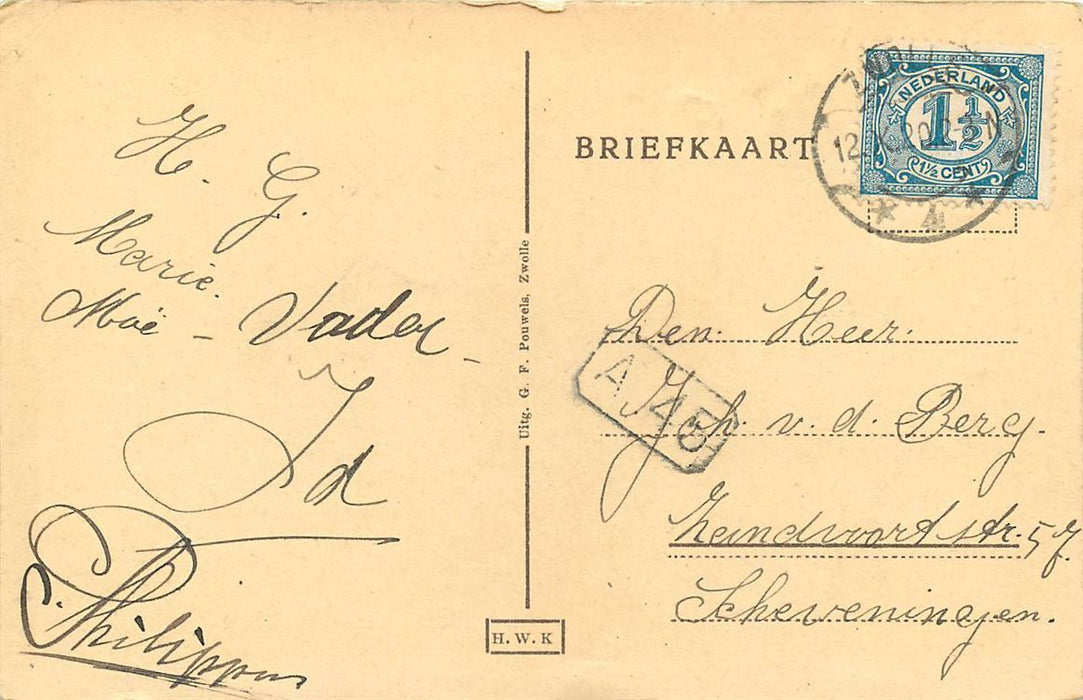 H. G.
Marie.
Moe - Vader -
Id
Philippus
Uitg. G. F. Pouwels, Zwolle
H. W. K
BRIEFKAART
NEDERLAND
1½
1½ CENT
12
20
4
A 45
Den Heer
J. h. v. d. Berg.
Zandvoortstr. 57
Scheveningen.